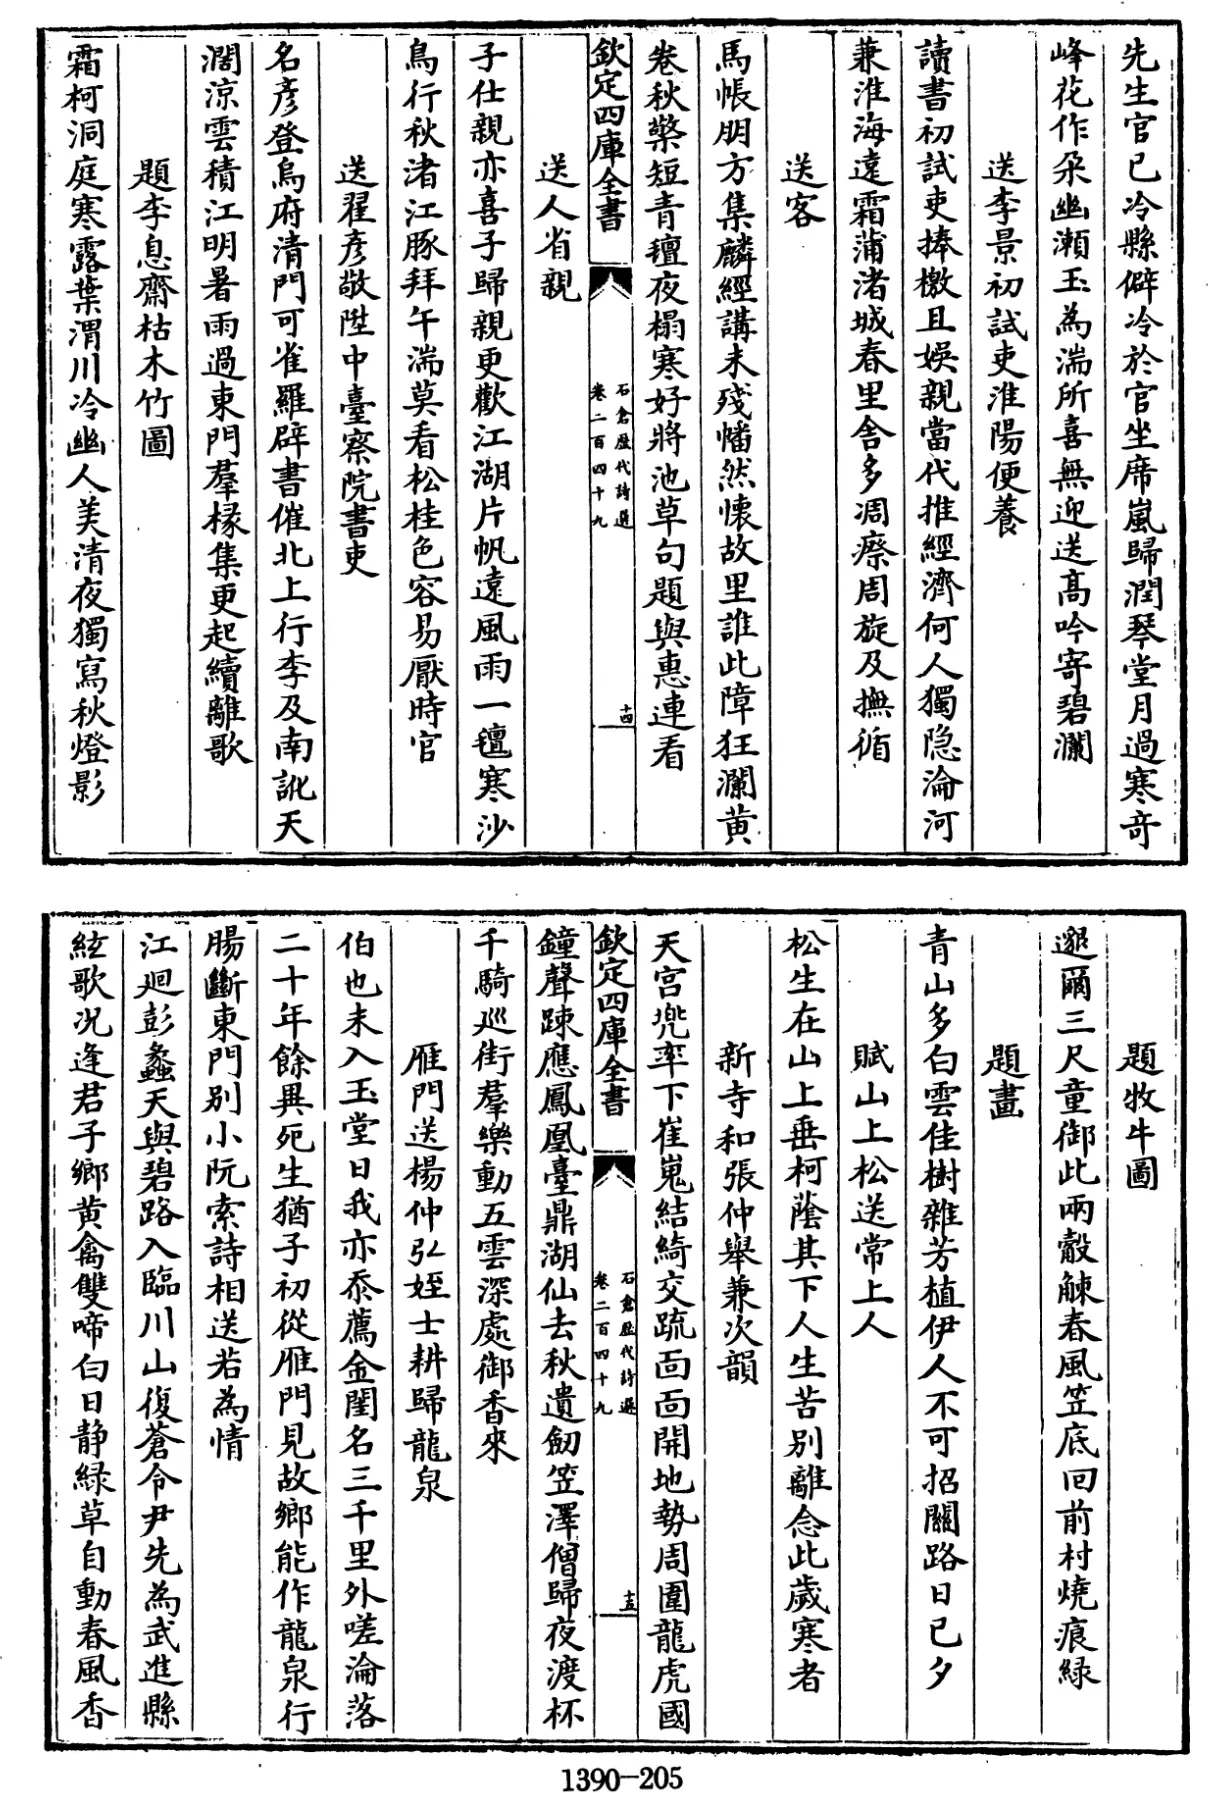 先生官已冷縣僻冷於官坐席嵐歸潤琴堂月過寒奇
峰花作朶幽瀨玉為湍所喜無迎送髙吟寄碧瀾
送李景初試吏淮陽便養
讀書初試吏捧檄且娯親當代推經濟何人獨隐淪河
兼淮海遠霜蒲渚城春里舍多凋瘵周旋及撫循
送客
馬帳朋方集麟經講未殘幡然懐故里誰此障狂瀾黄
卷秋檠短青氊夜榻寒好將池草句題與惠連看
欽定四庫全書
石倉歴代詩選
卷二百四十九
十四
送人省親
子仕親亦喜子歸親更歡江湖片帆逺風雨一氊寒沙
鳥行秋渚江豚拜午湍莫看松桂色容易厭時官
送翟彦敬陞中臺察院書吏
名彦登烏府清門可雀羅辟書催北上行李及南訛天
濶涼雲積江明暑雨過東門羣掾集更起續離歌
題李息齋枯木竹圖
霜柯洞庭寒露葉渭川冷幽人美清夜獨寫秋燈影
題牧牛圖
邈爾三尺童御此兩觳觫春風笠底回前村燒痕緑
題畫
青山多白雲佳樹雜芳植伊人不可招關路日已夕
賦山上松送常上人
松生在山上垂柯蔭其下人生苦别離念此歲寒者
新寺和張仲舉兼次韻
天宫兠率下崔嵬結綺交疏面面開地勢周圍龍虎國
欽定四庫全書
石倉歴代詩選
卷二百四十九
十五
鐘聲踈應鳳凰臺鼎湖仙去秋遺劒笠澤僧歸夜渡杯
千騎廵街羣樂動五雲深處御香來
雁門送楊仲弘姪士耕歸龍泉
伯也未入玉堂日我亦忝薦金閨名三千里外嗟淪落
二十年餘異死生猶子初從雁門見故鄉能作龍泉行
腸斷東門别小阮索詩相送若為情
江廻彭蠡天與碧路入臨川山復蒼令尹先為武進縣
絃歌况逢君子鄉黄禽雙啼白日静緑草自動春風香
1390-205